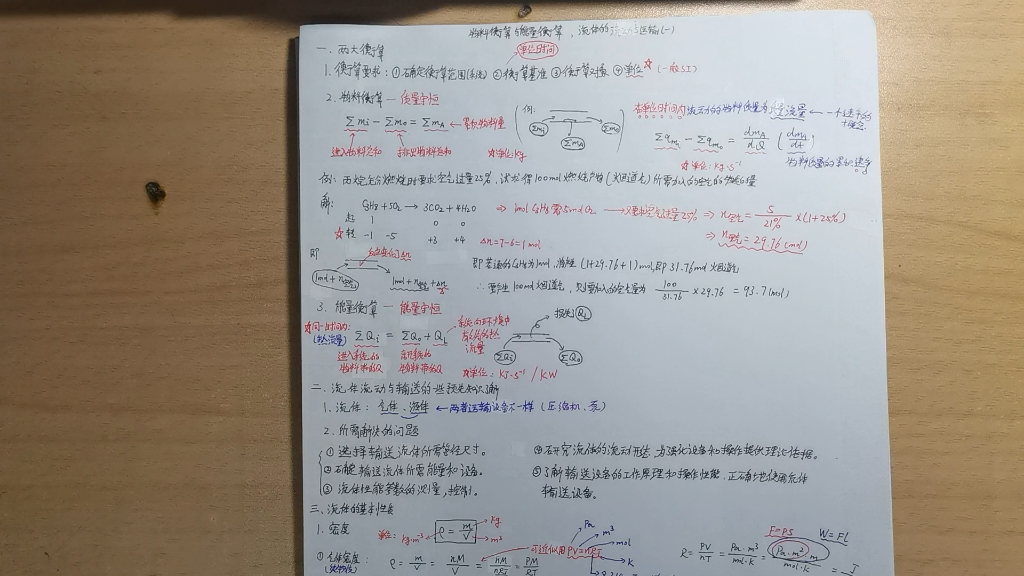 物料衡算与能量衡算，流体的流动与运输(一)
一. 两大衡算
单位时间
1. 衡算要求：①确定衡算范围(系统) ②衡算基准 ③衡算对象 ④单位☆(一般SI)
2. 物料衡算 — 质量守恒
Σmi - Σmo = ΣmA ← 累积物料量
进入物料总和 排出物料总和 ☆单位: kg
例: Σmi ΣmA Σmo
在单位时间内流动的物料质量为 流量
Σqmi - Σqmo = dmA/dθ (dmA/dt)
☆单位: kg·s⁻¹
物料质量的累积速率
例: 丙烷充分燃烧时要求空气过量25%, 试求得100mol燃烧产物(烟道气)所需加入的空气的物质的量
解: C3H8 + 5O2 → 3CO2 + 4H2O ⇒ 1mol C3H8需5mol O2 → 又要求空气过量25% ⇒ n空气 = 5/21% ×(1+25%)
起 1 0 0
☆转 -1 -5 +3 +4 Δn=7-6=1mol ⇒ n空气 = 29.76(mol)
即
1mol+n空气 1mol+n空气+Δn
即若通的C3H8为1mol, (1+29.76+1)mol, 即31.76mol烟道气
∴ 要产生100mol烟道气, 则要加入的空气量为 100/31.76 ×29.76 = 93.7(mol)
3. 能量衡算 — 能量守恒
☆同一时间内: ΣQi = ΣQo + QL
(热流量)
进入系统的物料带的Q 离开系统的物料带的Q
系统向环境中散失的热流量
损失QL ΣQi ΣQo
☆单位: kJ·s⁻¹ / kW
二. 流体流动与输送的一些预先知识了解
1. 流体: 气体、液体 ← 两者运输设备不一样 (压缩机、泵)
2. 所需解决的问题
① 选择输送流体所需管径尺寸。
② 确定输送流体所需能量和设备。
③ 流体性能参数的测量, 控制。
④ 研究流体的流动形态, 为强化设备和操作提供理论依据。
⑤ 了解输送设备的工作原理和操作性能, 正确地使用流体
输送设备。
三. 流体的基本性质
1. 密度 单位: kg·m⁻³ ρ = m/V kg m³
① 气体密度: ρ = m/V = nM/V = nM/nRT/P = PM/RT
可近似用 PV=nRT Pa m³ mol K
R = PV/nT = Pa·m³/mol·K = Pa·m²·m/mol·K
F=PS W=FL